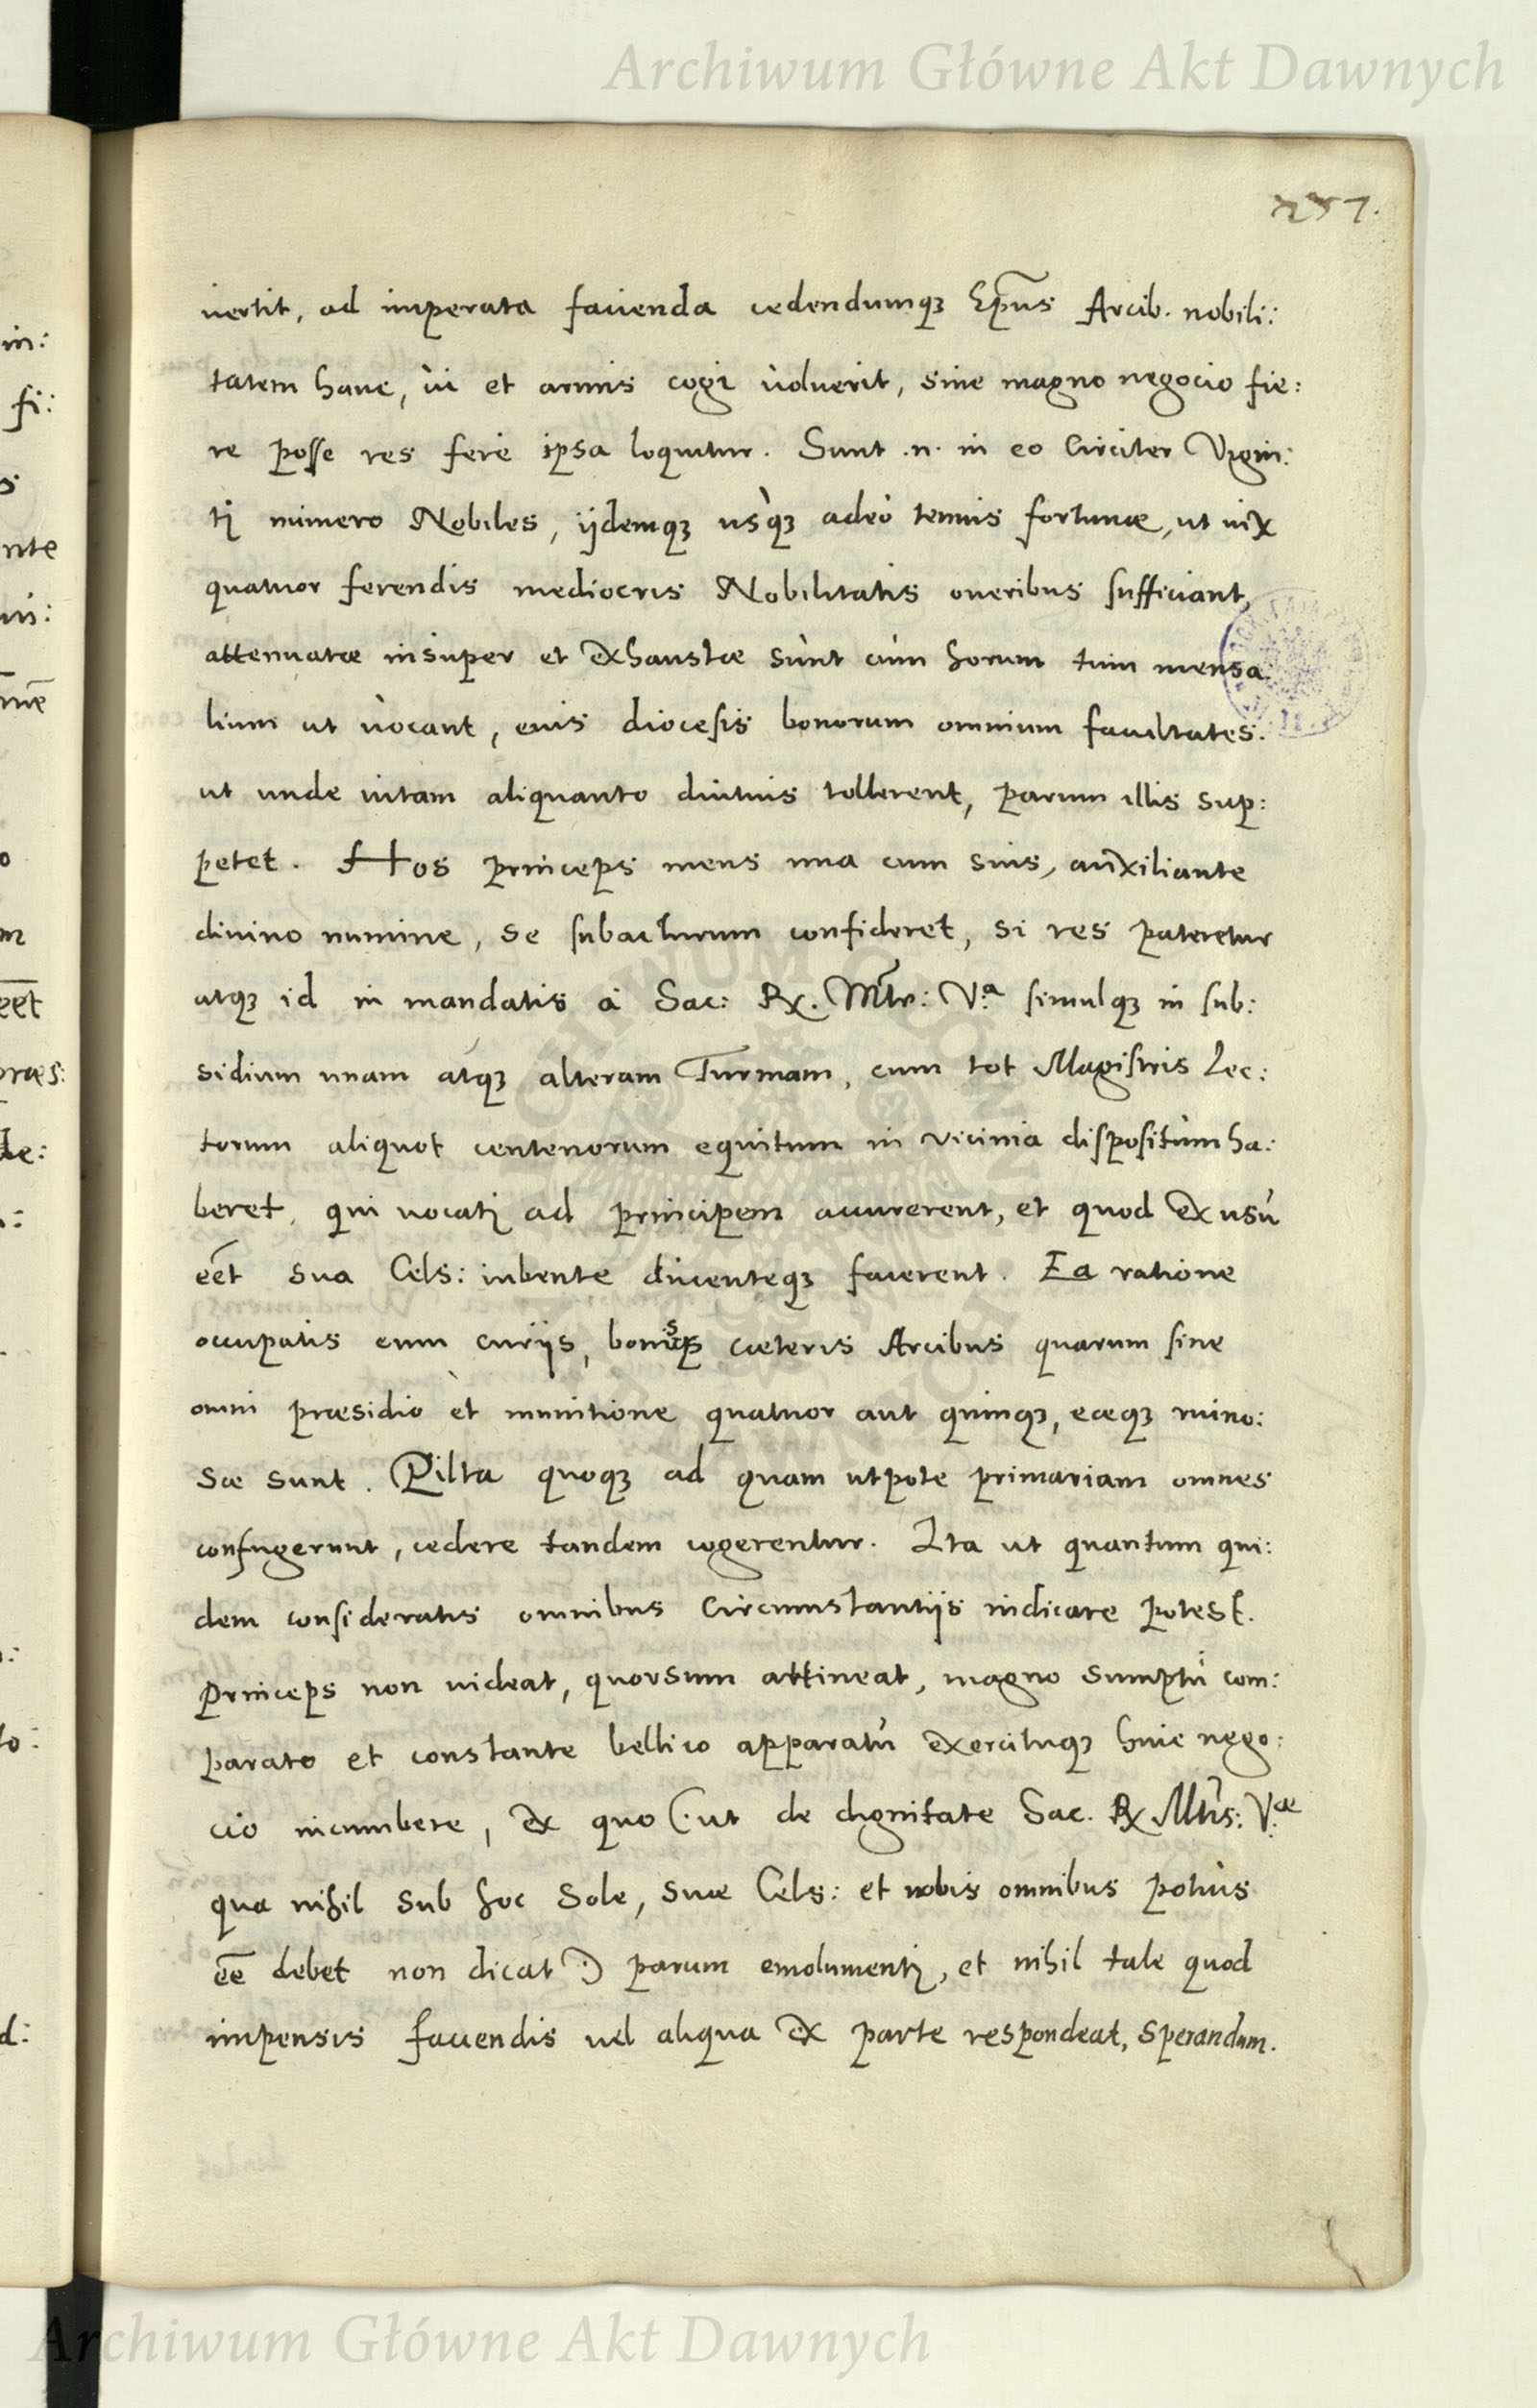 Archiwum Główne Akt Dawnych
257.
uertit, ad imperata facienda cedendumq3 Ep̃us Arcib. nobili:
tatem hanc, ùi et armis cogi ùoluerit, sine magno negocio fie:
re posse res ferè ipsa loquitur. Sunt .n. in eo Circiter Vigin:
ti numero Nobiles, ijdemq3 usq̀3 adeò tenuis fortunæ, ut uix
quatuor ferendis mediocris Nobilitatis oneribus sufficiant,
attenuatæ insuper et exhaustæ sùnt cùm horum tum mensa:
lium ut ùocant, eius diocesis bonorum omnium facultates.
ut unde uitam aliquanto diutius tollerent, parum illis sup:
petet. Hos princeps meus una cum suis, auxiliante
diuino numine, se subacturum confideret, si res pateretur
atq3 id in mandatis à Sac: Rx. Mt̃e: V.ª simulq3 in sub:
sidium unam atq3 alteram Turmam, cum tot Magistris Lec:
torum aliquot centenorum equitum in vicinia dispositùm ha:
beret, qui uocati ad principem accurrerent, et quod ex usù
eẽt sua Cels: iubente ducenteq3 facerent. Ea ratione
occupatis eum curijs, bonisq3 cæteris Arcibus quarum sine
omni præsidio èt munitione quatuor aut quinq3, eæq3 ruino:
sæ sunt. Pilta quoq3 ad quam utpote primariam omnes
confugerunt, cedere tandem cogerentur. Ita ut quantum qui:
dem consideratis omnibus Circumstantijs iudicare potest.
Princeps non uideat, quorsum attineat, magno sumptù com:
parato et constante bellico apparatù exercituq3 huic nego:
cio incumbere, ex quo (: ut de dignitate Sac. Rx Mt̃is: V.æ
qua nihil sub hoc Sole, suæ Cels: et nobis omnibus potiùs
eẽe debet non dicat :) parum emolumenti, et nihil tale quod
impensis faciendis uel aliqua ex parte respondeat, sperandum.
Archiwum Główne Akt Dawnych